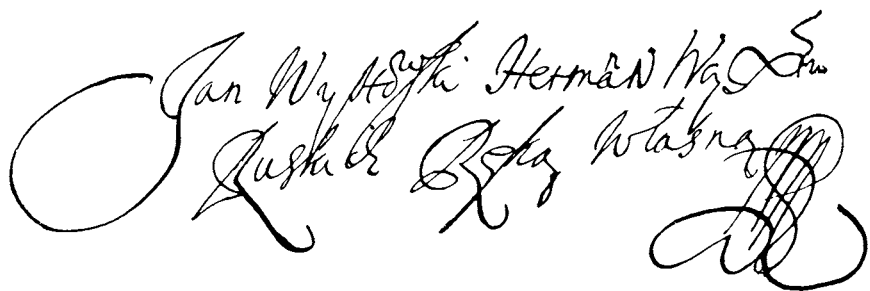 Jan Wyhowski Hetman
Ruskich Ręką Własną